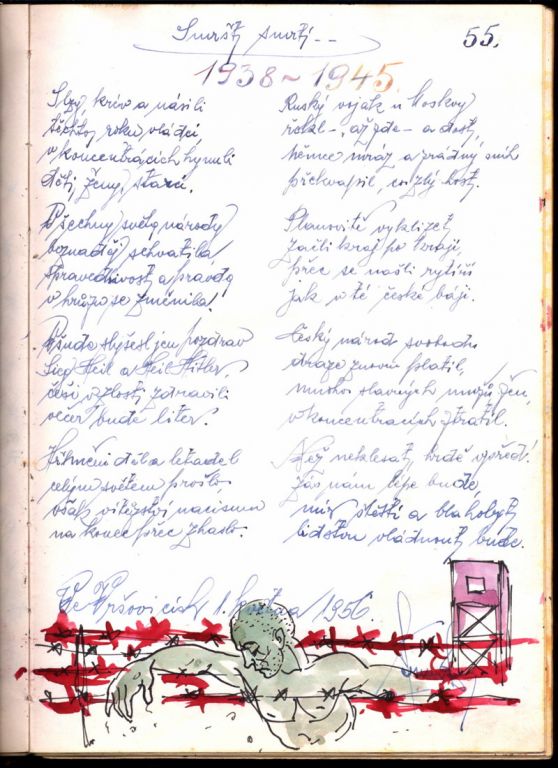 Smršť smrti --
55.
1938 ~ 1945
Slzy, krev a násilí
těchto roků vládci,
v koncentrácích hynuli
děti, ženy, starci.
Všechny světa národy
beznaděj schvátila,
spravedlivost a pravda
v hrůzu se změnila.
Všude slyšels jen pozdrav
Sieg Heil a Heil Hitler,
češi v zlosti zdravili
večer bude liter.
Hřmění děl a letadel
celým světem prošlo,
však vítězství nacismu
na konec přec zhaslo.
Ruský voják u Moskvy
řekl - až zde - a dosti,
němce mráz a zrádný sníh
překvapil, co zlý host.
Planovitě vyklizet
začli kraj po kraji,
přec se našli rytíři
jak v té české báji.
Český národ svobodu
draze znovu platil,
mnoho slavných mužů, žen,
v koncentrácích ztratil.
Než neklesat, hrdě vpřed!
Zas nám lépe bude,
mír štěstí a blahobyt
lidstvu vládnout bude.
Ve Vršovicích 1. května 1956.